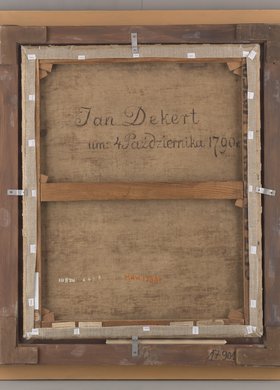 Jan Dekert
um: 4 Października 1790r
17901